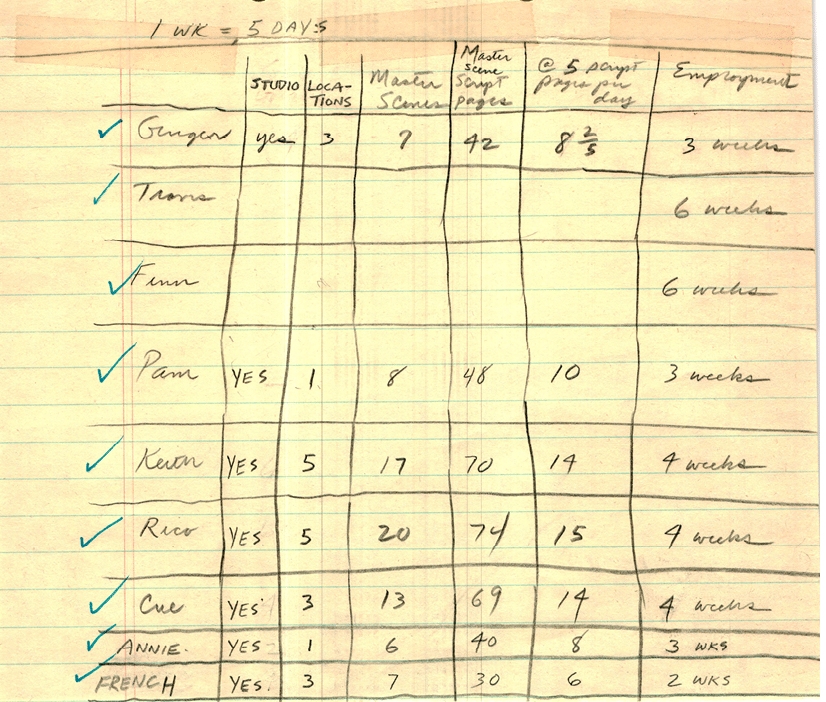 1 WK = 5 DAYS
STUDIO LOCA-TIONS Master Scenes Master scene Script pages @ 5 script pages per day Employment
Ginger yes 3 7 42 8 2/5 3 weeks
Travis 6 weeks
Finn 6 weeks
Pam YES 1 8 48 10 3 weeks
Keith YES 5 17 70 14 4 weeks
Rico YES 5 20 74 15 4 weeks
Cue YES 3 13 69 14 4 weeks
ANNIE. YES 1 6 40 8 3 WKS
FRENCH YES. 3 7 30 6 2 WKS